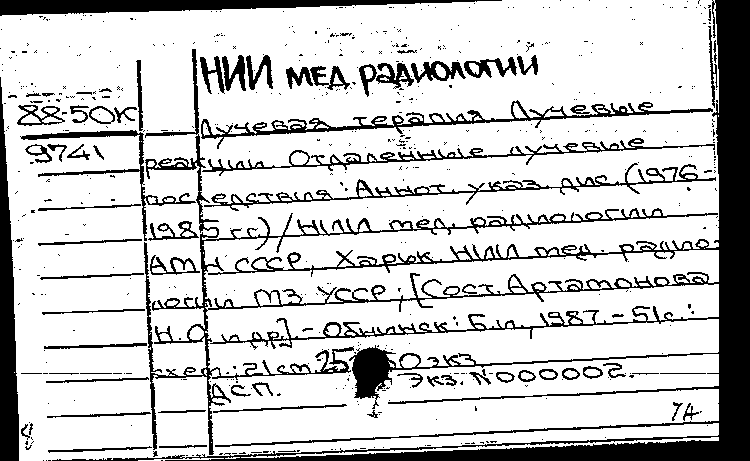 НИИ мед. радиологии
88-50К
9741
Лучевая терапия. Лучевые
реакции. Отдаленные лучевые
последствия: Аннот. указ. дис. (1976-
1985 гг.) / НИИ мед. радиологии
АМН СССР, Харьк. НИИ мед. радио-
логии МЗ УССР; [Сост. Артамонова
Н.О. и др]. - Обнинск: Б.и., 1987. - 51с.:
схем.; 21см. 25 0экз.
ДСП. Экз. N000002.
7А
8